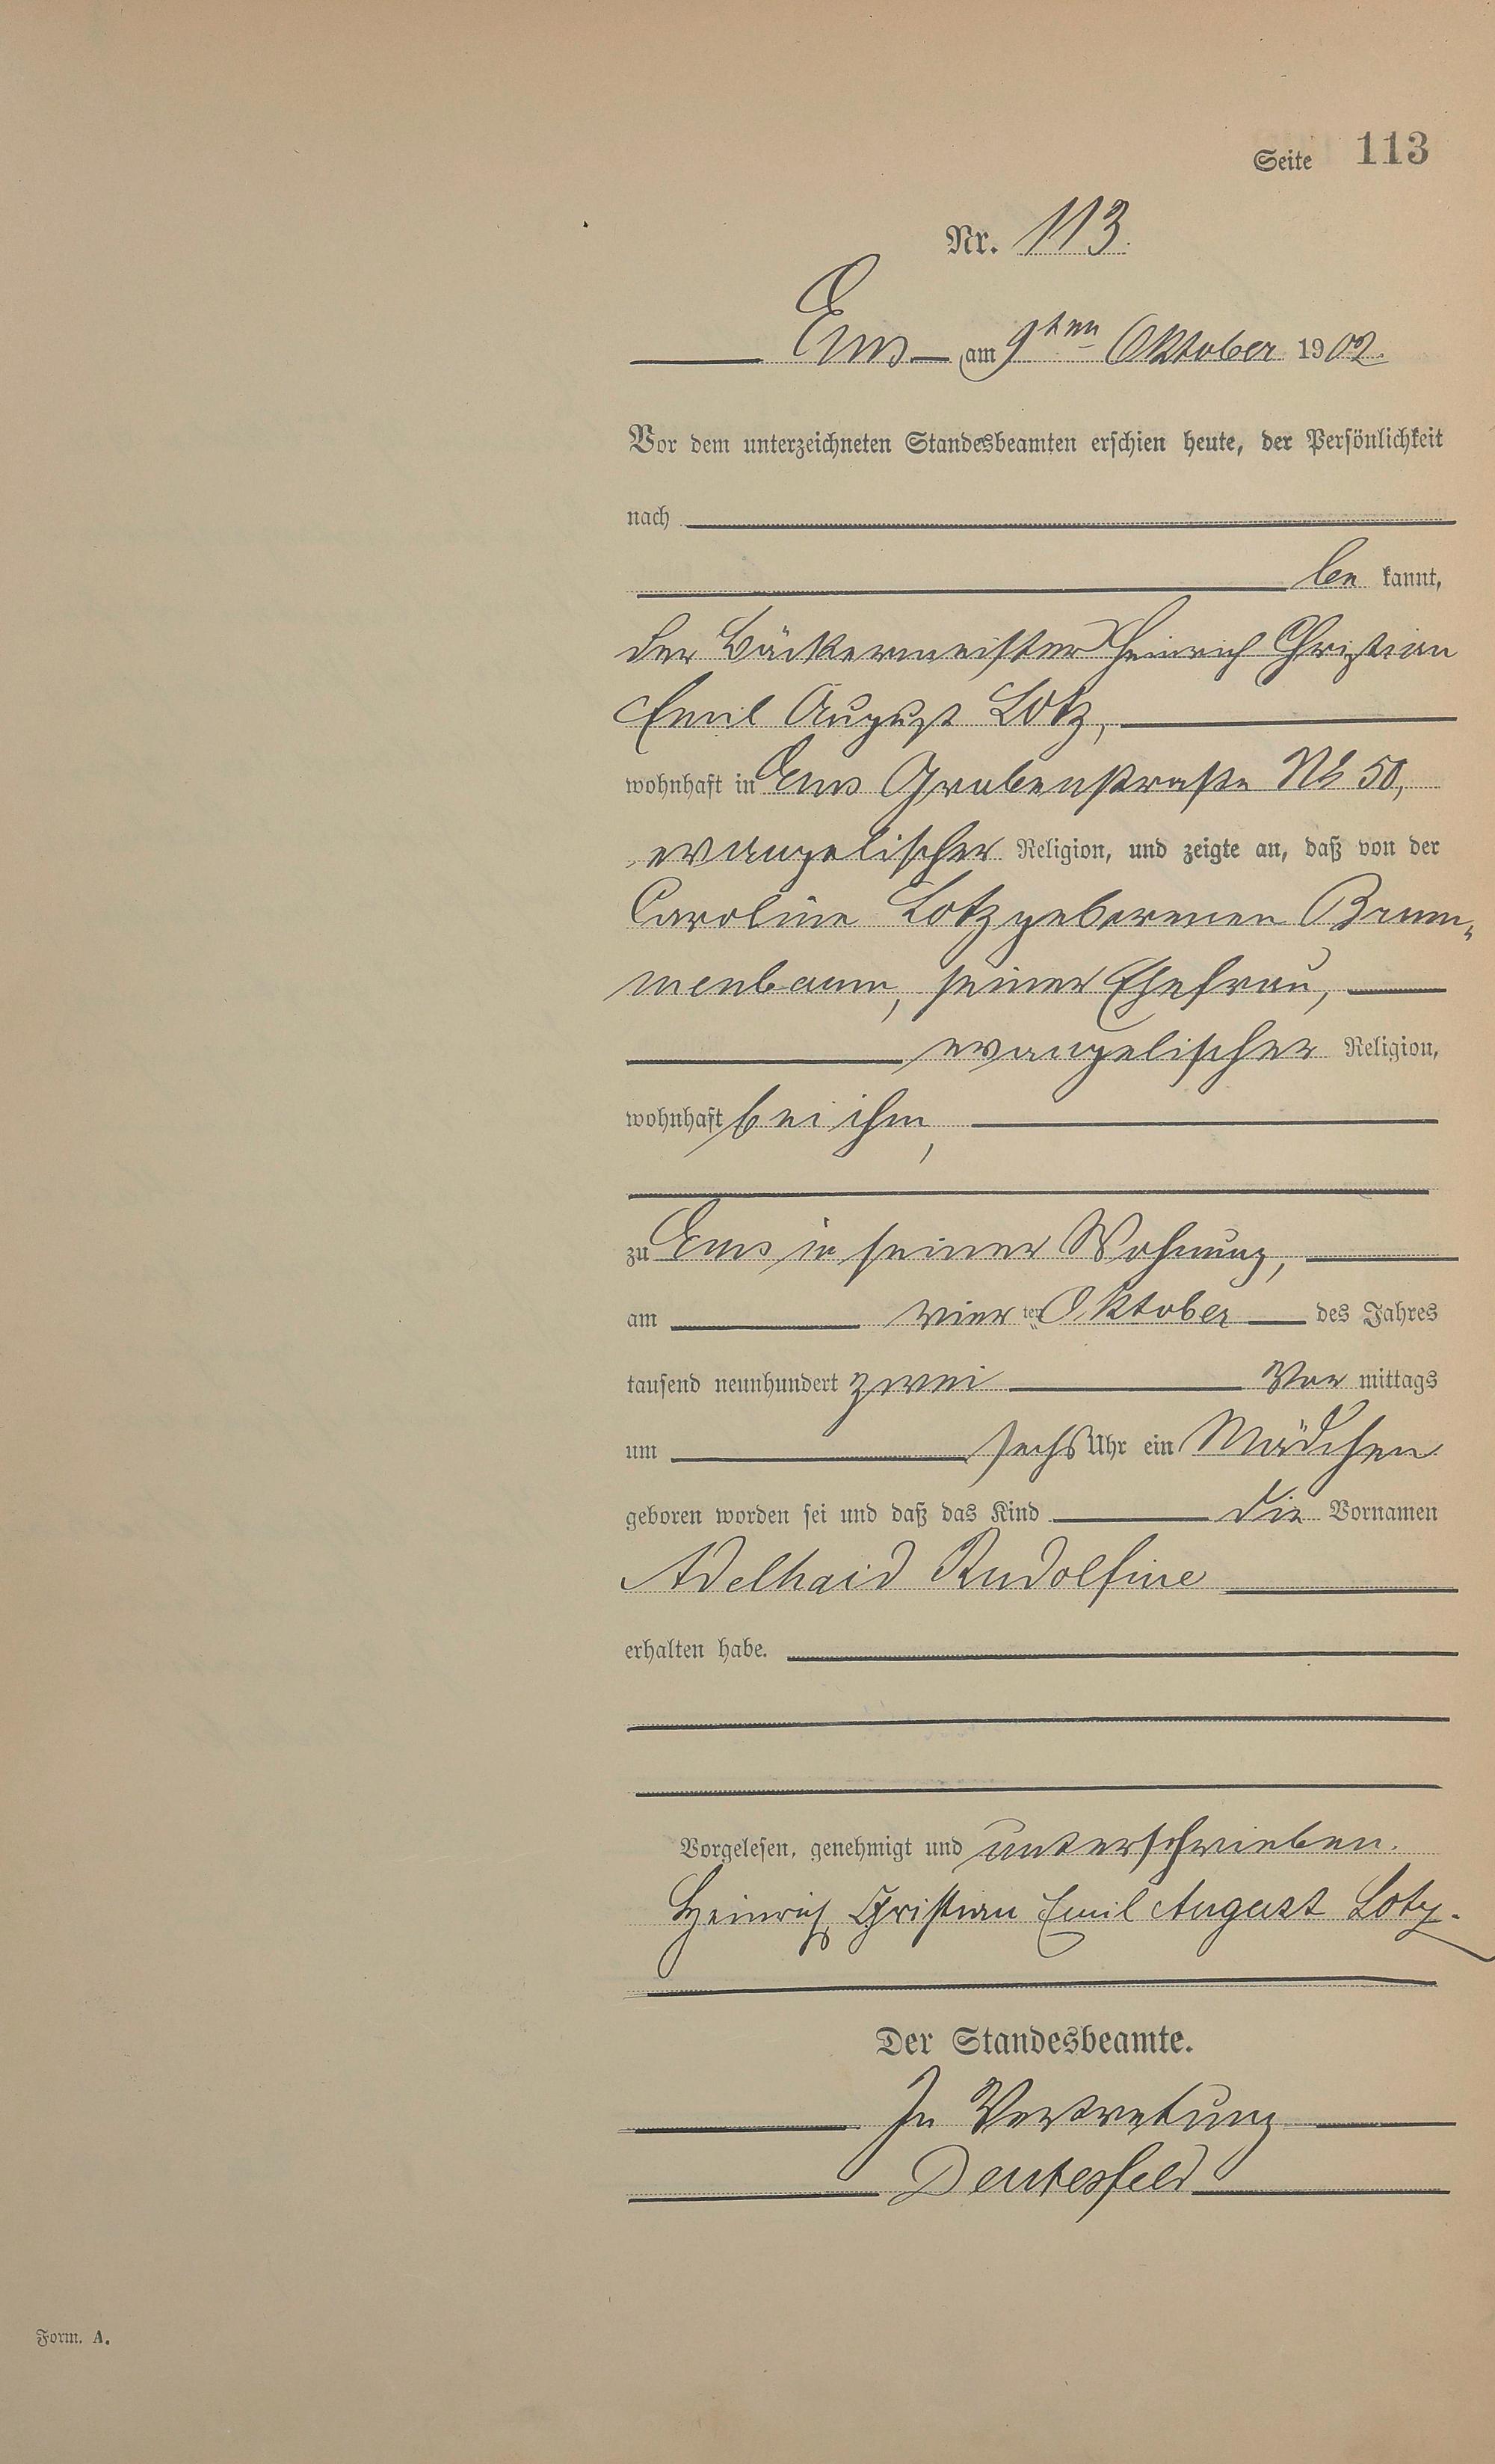 Seite 113
Nr. 113.
Ems am 9ten Oktober 1902.
Vor dem unterzeichneten Standesbeamten erschien heute, der Persönlichkeit
nach
be kannt,
der Bäckermeister Heinrich Christian
Emil August Lotz,
wohnhaft in Ems Grabenstraße No 50,
evangelischer Religion, und zeigte an, daß von der
Caroline Lotz geborenen Brum„
menbaum, seiner Ehefrau,
evangelischer Religion,
wohnhaft bei ihm,
zu Ems in seiner Wohnung,
am vier ten Oktober des Jahres
tausend neunhundert zwei Vor mittags
um sechs Uhr ein Mädchen
geboren worden sei und daß das Kind die Vornamen
Adelhaid Rudolfine
erhalten habe.
Vorgelesen, genehmigt und unterschrieben.
Heinrich Christian Emil August Lotz.
Der Standesbeamte.
In Vertretung
Deutesfeld
Form. A.